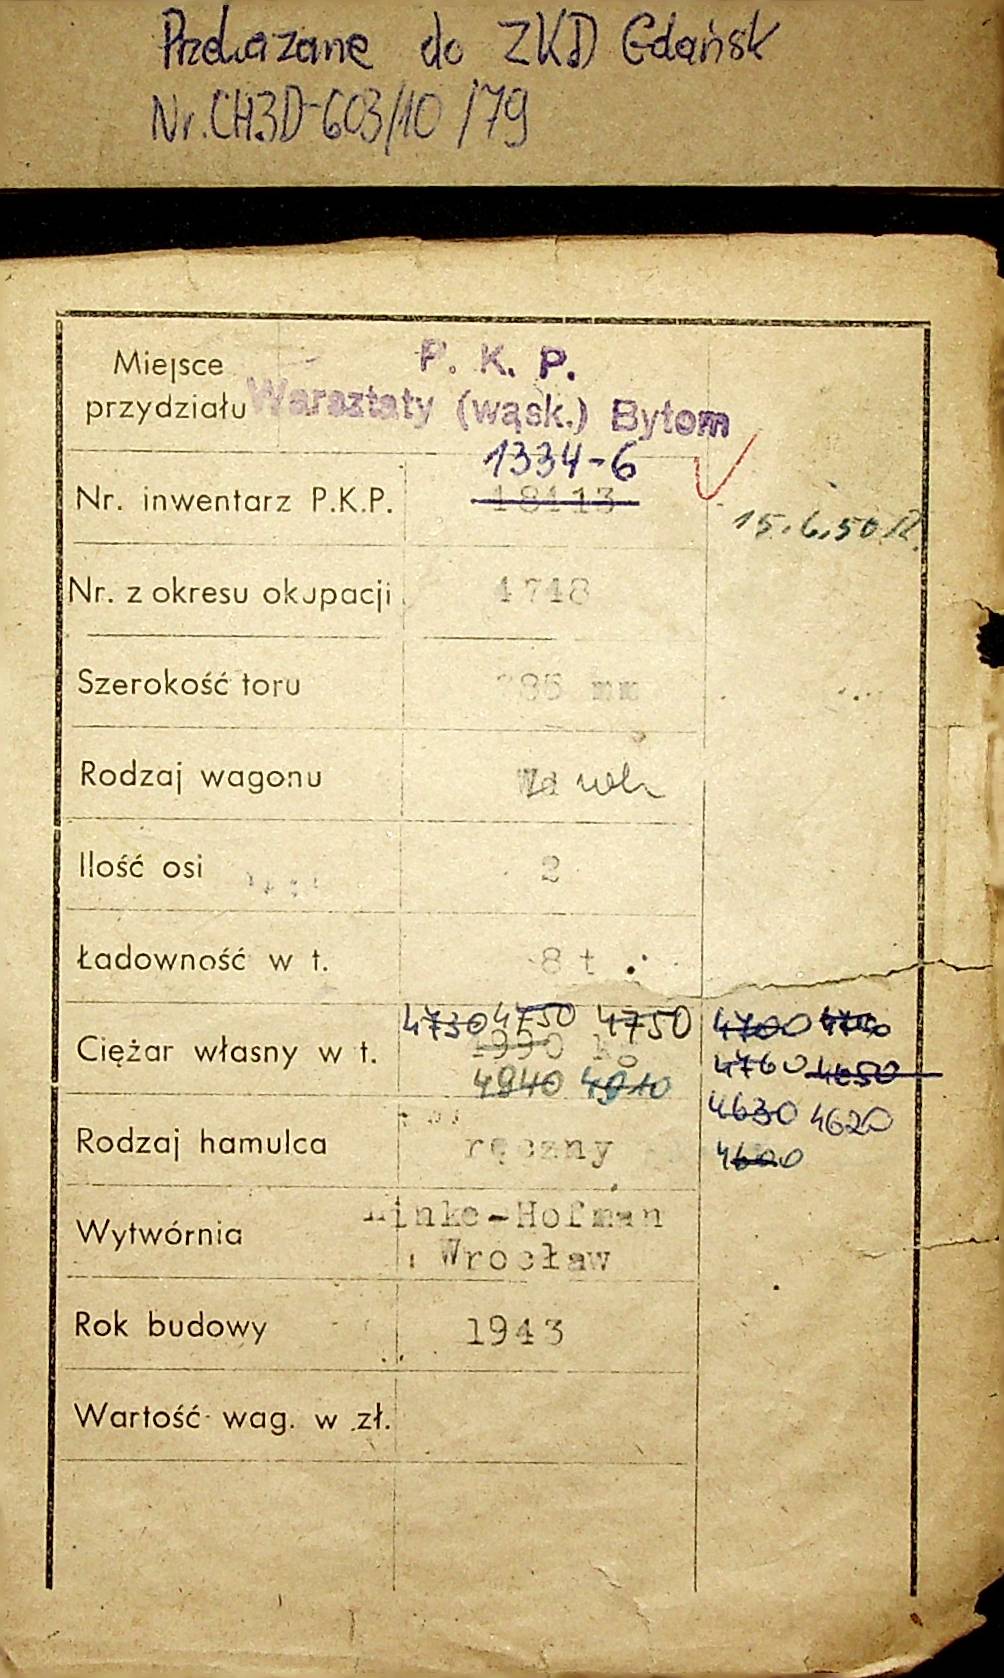 Przekazane do ZKD Gdańsk
Nr.CH3D-603/10/79
P. K. P.
Miejsce
przydziału Warsztaty (wąsk.) Bytom
1334-6
Nr. inwentarz P.K.P. 18113
15.6.50
Nr. z okresu okupacji 4748
Szerokość toru 785 mm
Rodzaj wagonu Wd
Ilość osi 2
Ładowność w t. 8 t
4730 4750 4750 4700
Ciężar własny w t. kg 4760 4650
4940 4910
4630 4620
Rodzaj hamulca ręczny 4600
Linke-Hofman
Wytwórnia Wrocław
Rok budowy 1943
Wartość wag. w zł.